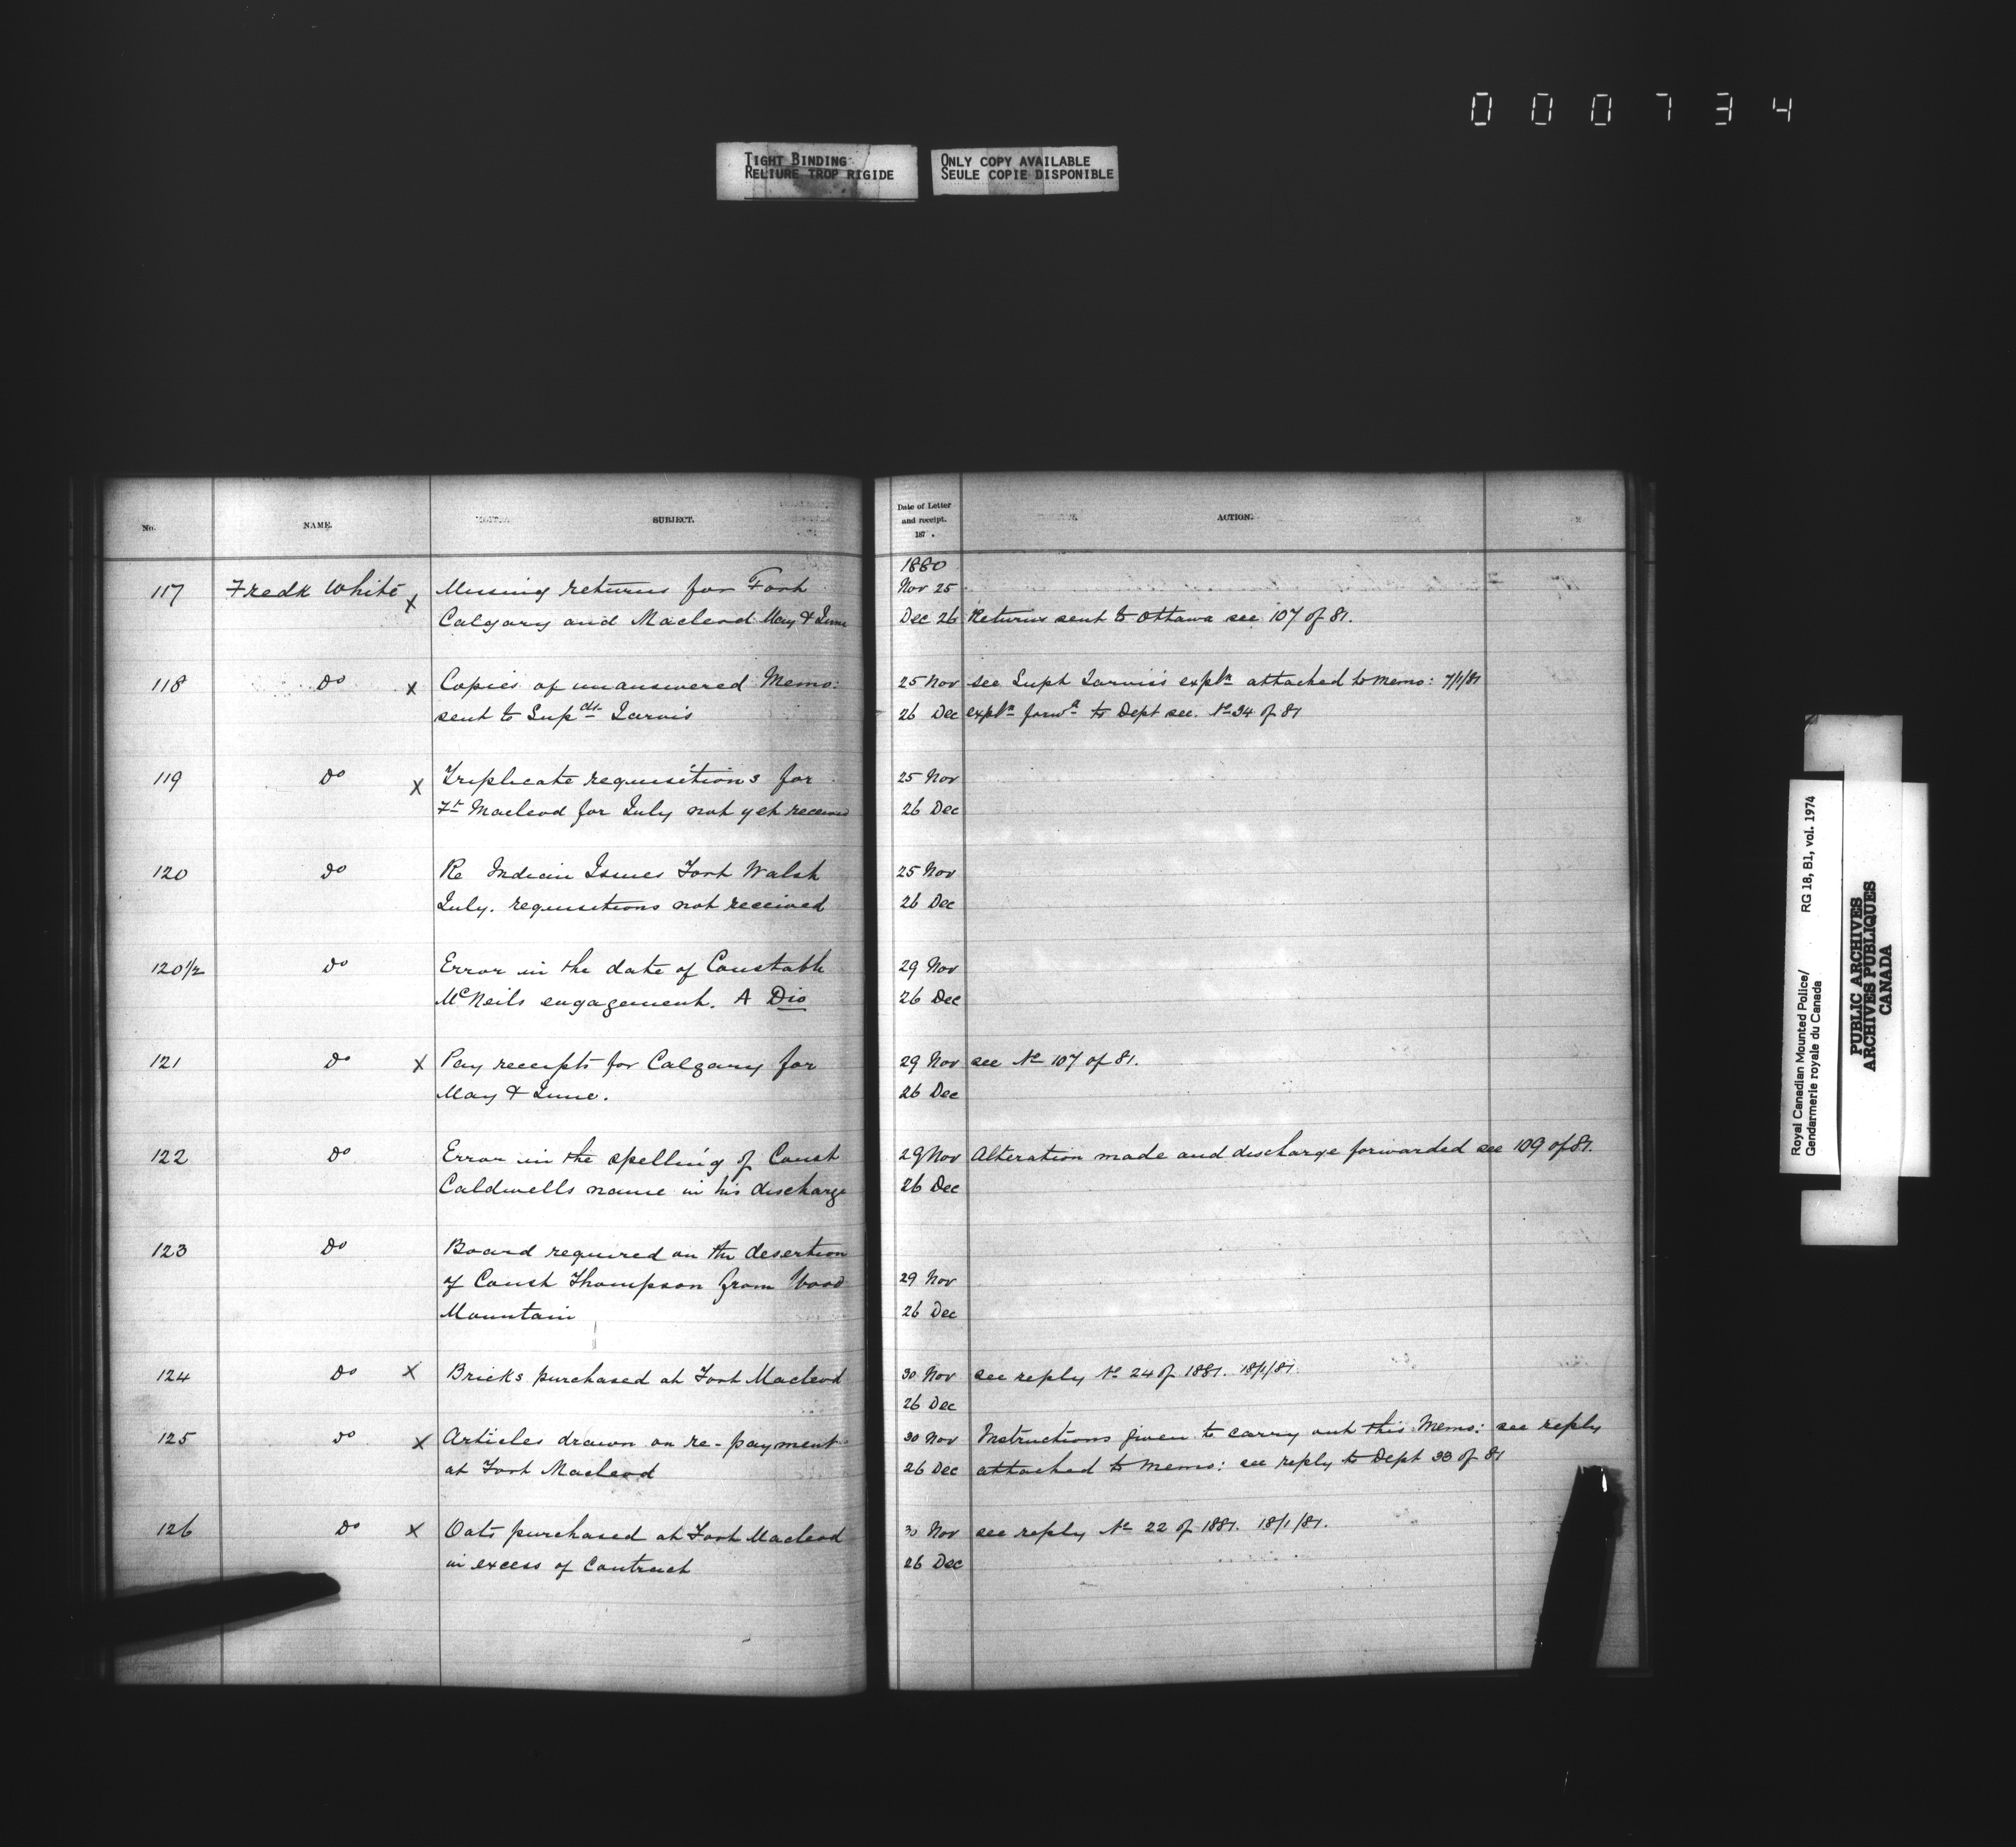 000734
TIGHT BINDING
RELIURE TROP RIGIDE
ONLY COPY AVAILABLE
SEULE COPIE DISPONIBLE
No.
NAME.
SUBJECT.
Date of Letter
and receipt.
187 .
ACTION.
1880
117 Fredk White x Missing returns for Fort Nov 25
Calgary and Macleod May & June Dec 26 Returns sent to Ottawa see 107 of 81.
118 Do x Copies of unanswered Memo: 25 Nov see Supt Jarvis's expln attached to memo: 7/1/81
sent to Supdt Jarvis 26 Dec expln forwd to Dept see. No 34 of 81
119 Do x Triplicate requisitions for 25 Nov
Ft Macleod for July not yet received 26 Dec
120 Do Re Indian Issues Fort Walsh 25 Nov
July. requisitions not received 26 Dec
120 1/2 Do Error in the date of Constable 29 Nov
McNeils engagement. A Div 26 Dec
121 Do x Pay receipts for Calgary for 29 Nov see No 107 of 81.
May & June. 26 Dec
122 Do Error in the spelling of Const 29 Nov Alteration made and discharge forwarded see 109 of 81.
Caldwells name in his discharge 26 Dec
123 Do Board required on the desertion
of Const Thompson from Wood 29 Nov
Mountain 26 Dec
124 Do x Bricks purchased at Fort Macleod 30 Nov see reply No 24 of 1881. 18/1/81.
26 Dec
125 Do x Articles drawn on re-payment 30 Nov Instructions given to carry out this Memo: see reply
at Fort Macleod 26 Dec attached to memo: see reply to Dept 33 of 81
126 Do x Oats purchased at Fort Macleod 30 Nov see reply No 22 of 1881. 18/1/81.
in excess of Contract 26 Dec
Royal Canadian Mounted Police/
Gendarmerie royale du Canada
RG 18, B1, vol. 1974
PUBLIC ARCHIVES
ARCHIVES PUBLIQUES
CANADA